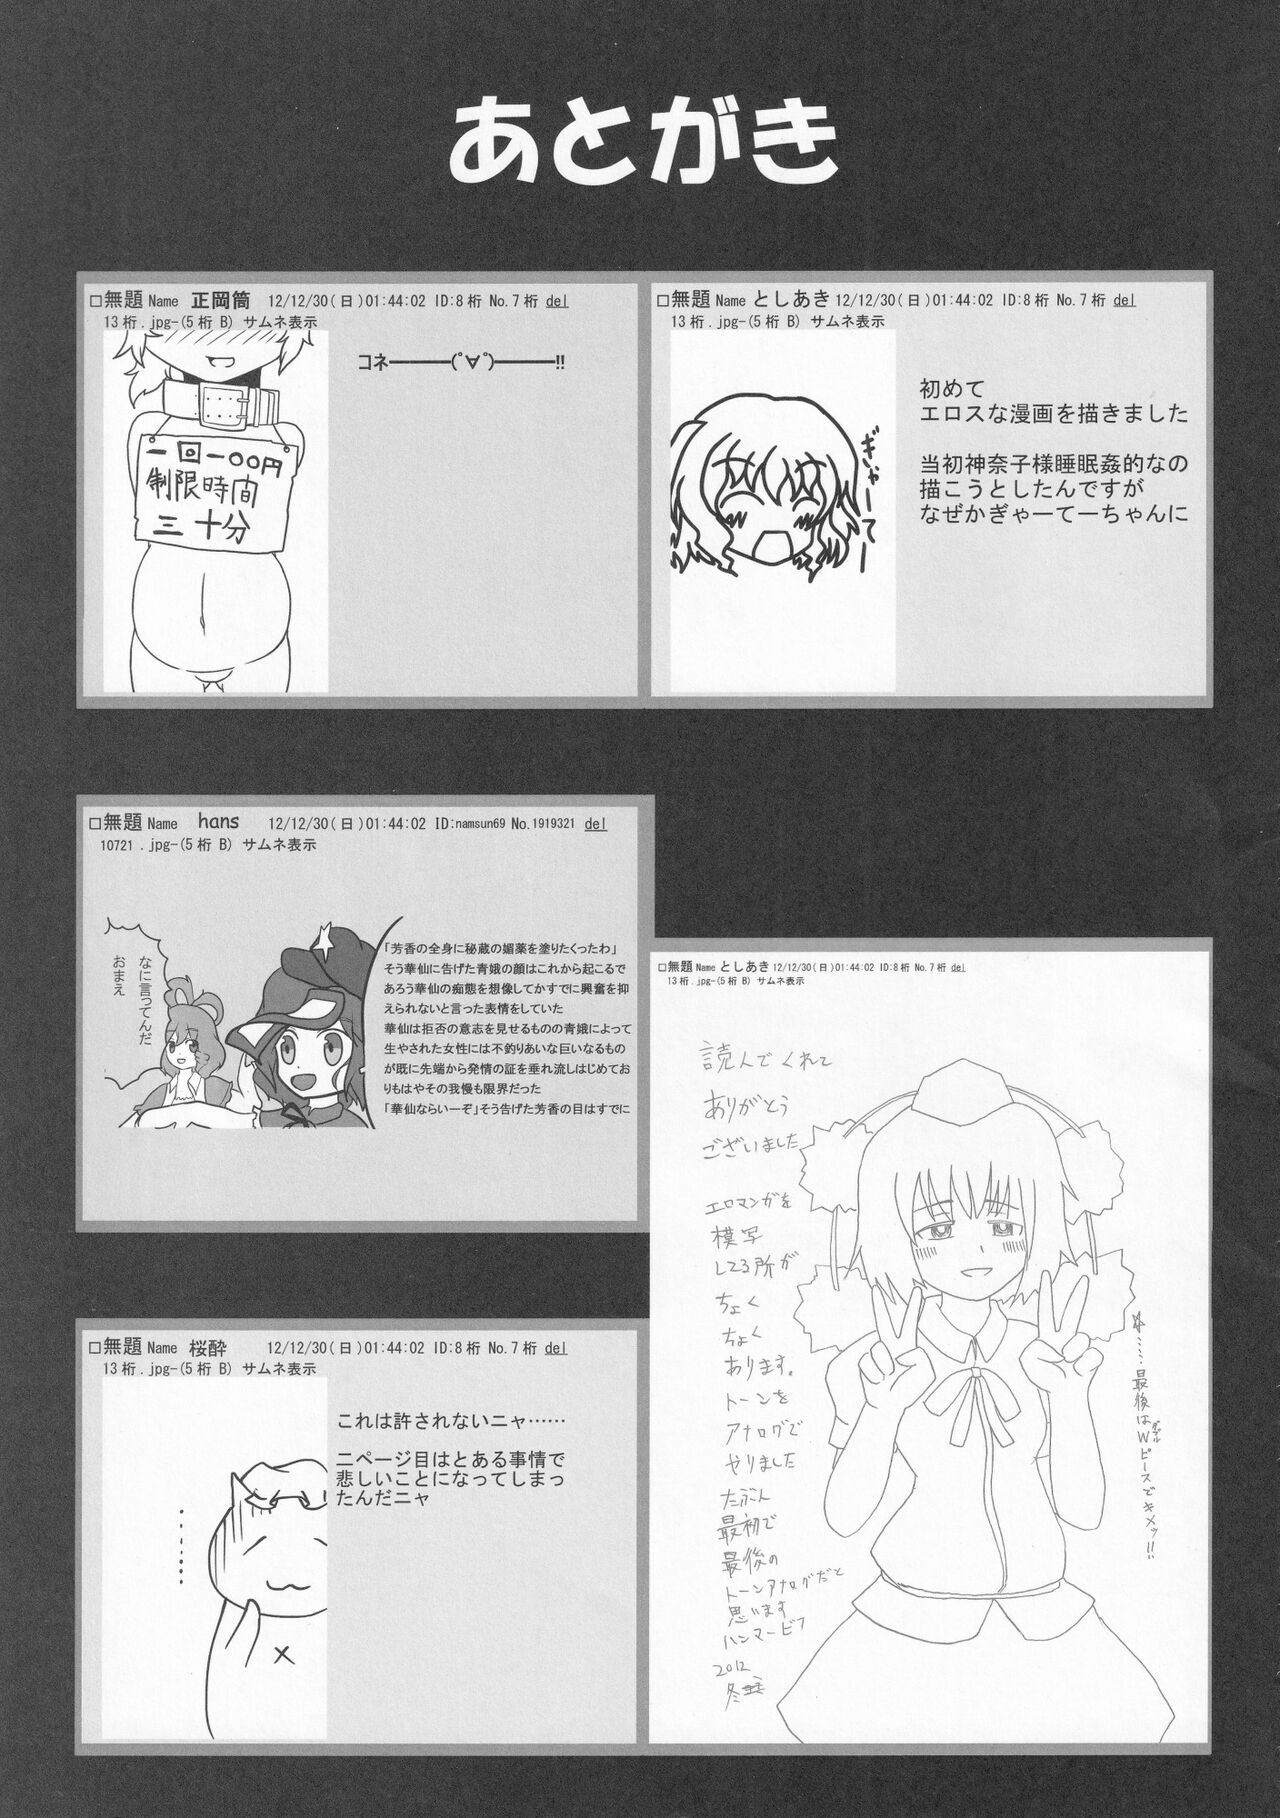 あとがき
□無題 Name 正岡筒 12/12/30(日)01:44:02 ID:8桁 No.7桁 del
13桁.jpg-(5桁 B) サムネ表示
一回一〇〇円
制限時間
三十分
コネ━━━━(ﾟ∀ﾟ)━━━━!!
□無題 Name としあき 12/12/30(日)01:44:02 ID:8桁 No.7桁 del
13桁.jpg-(5桁 B) サムネ表示
ぎゃーてー
初めて
エロスな漫画を描きました
当初神奈子様睡眠姦的なの
描こうとしたんですが
なぜかぎゃーてーちゃんに
□無題 Name hans 12/12/30(日)01:44:02 ID:namsun69 No.1919321 del
10721.jpg-(5桁 B) サムネ表示
なに言ってんだ
おまえ
「芳香の全身に秘蔵の媚薬を塗りたくったわ」
そう華仙に告げた青娥の顔はこれから起こるで
あろう華仙の痴態を想像してかすでに興奮を抑
えられないと言った表情をしていた
華仙は拒否の意志を見せるものの青娥によって
生やされた女性には不釣りあいな巨いなるもの
が既に先端から発情の証を垂れ流しはじめてお
りもはやその我慢も限界だった
「華仙ならいーぞ」そう告げた芳香の目はすでに
□無題 Name としあき 12/12/30(日)01:44:02 ID:8桁 No.7桁 del
13桁.jpg-(5桁 B) サムネ表示
読んでくれて
ありがとう
ございました
エロマンガを
模写
してる所が
ちょく
ちょく
あります。
トーンを
アナログで
やりました
たぶん
最初で
最後の
トーンアナログだと
思います
ハンマービフ
2012
冬
最後はWピースでキメッ!!
ダブル
□無題 Name 桜酔 12/12/30(日)01:44:02 ID:8桁 No.7桁 del
13桁.jpg-(5桁 B) サムネ表示
……
これは許されないニャ……
二ページ目はとある事情で
悲しいことになってしまっ
たんだニャ